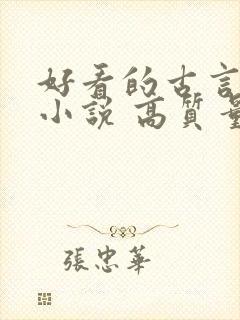 好看的古言
小說 高質量
張忠華